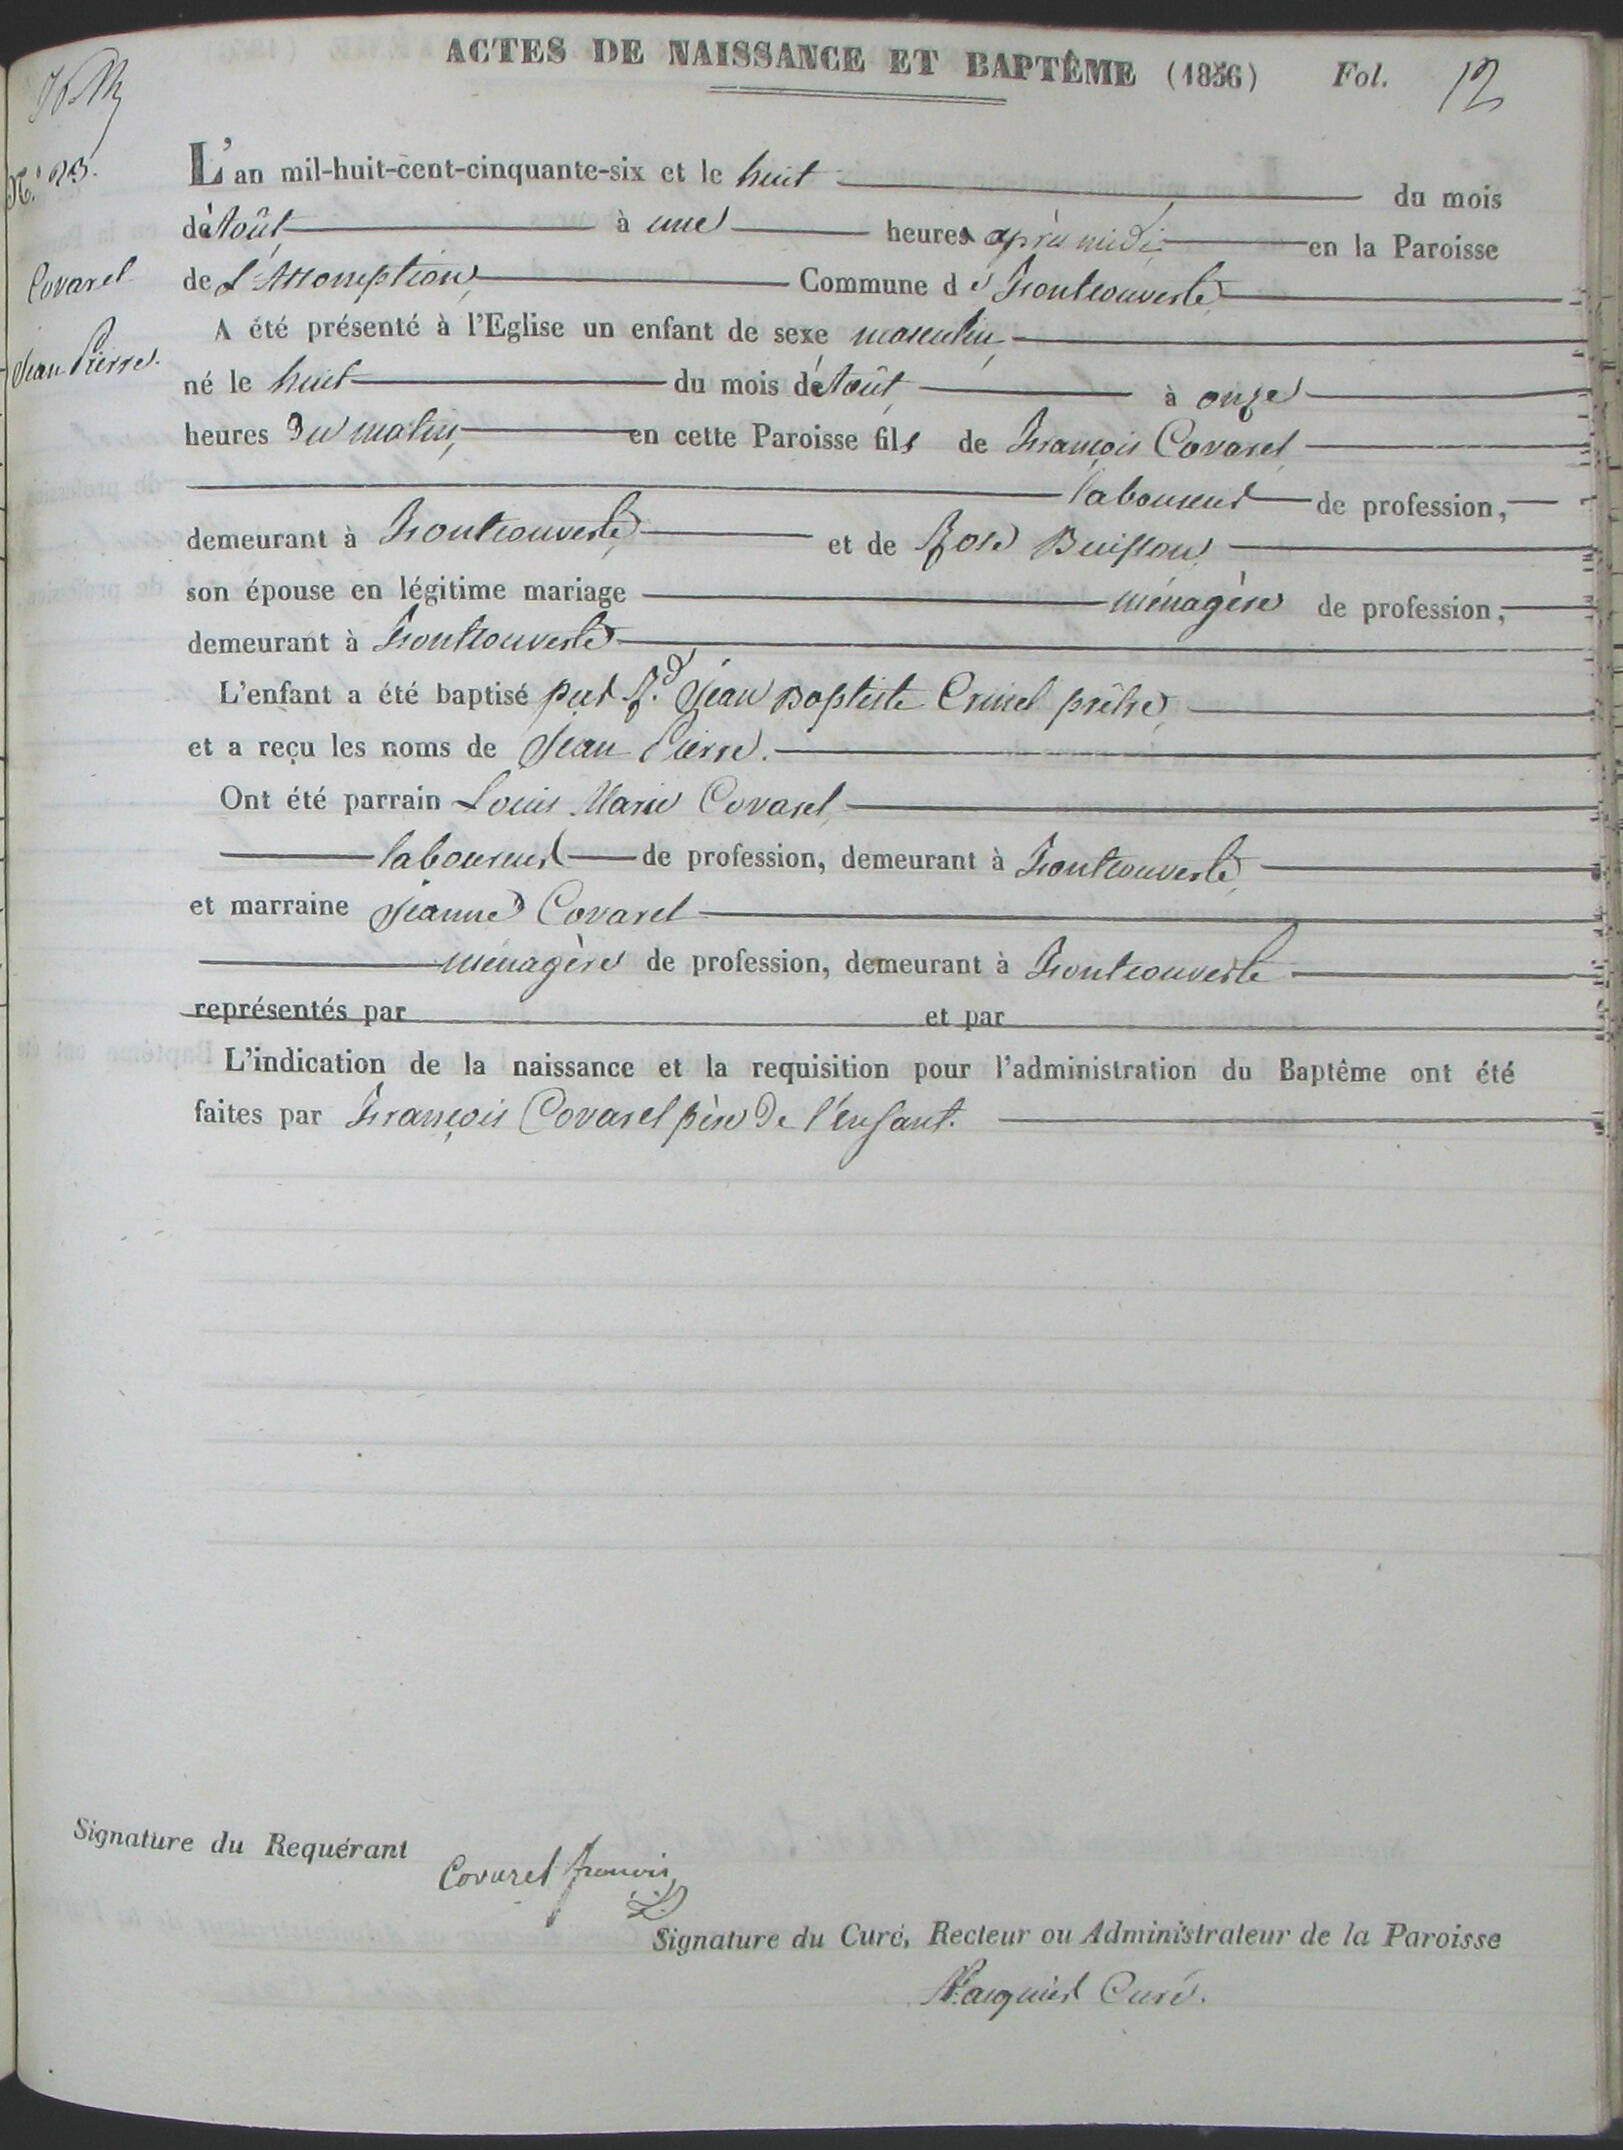 ACTES DE NAISSANCE ET BAPTÊME (1856) Fol. 12
N.° 23.
Covarel
Jean Pierre.
L'an mil-huit-cent-cinquante-six et le huit du mois
d'Août à une heure après midi en la Paroisse
de L'Assomption, Commune de Fontcouverte
A été présenté à l'Eglise un enfant de sexe masculin,
né le huit du mois d'Août, à onze
heures du matin, en cette Paroisse fils de François Covarel
laboureur de profession,
demeurant à Fontcouverte, et de Rose Buisson,
son épouse en légitime mariage ménagère de profession,
demeurant à Fontcouverte
L'enfant a été baptisé par R.d Jean Baptiste prêtre,
et a reçu les noms de Jean Pierre.
Ont été parrain Louis Marie Covarel,
laboureur de profession, demeurant à Fontcouverte,
et marraine Jeanne Covarel
ménagère de profession, demeurant à Fontcouverte
représentés par et par
L'indication de la naissance et la requisition pour l'administration du Baptême ont été
faites par François Covarel père de l'enfant.
Signature du Requérant Covarel françois
Signature du Curé, Recteur ou Administrateur de la Paroisse
Curé.